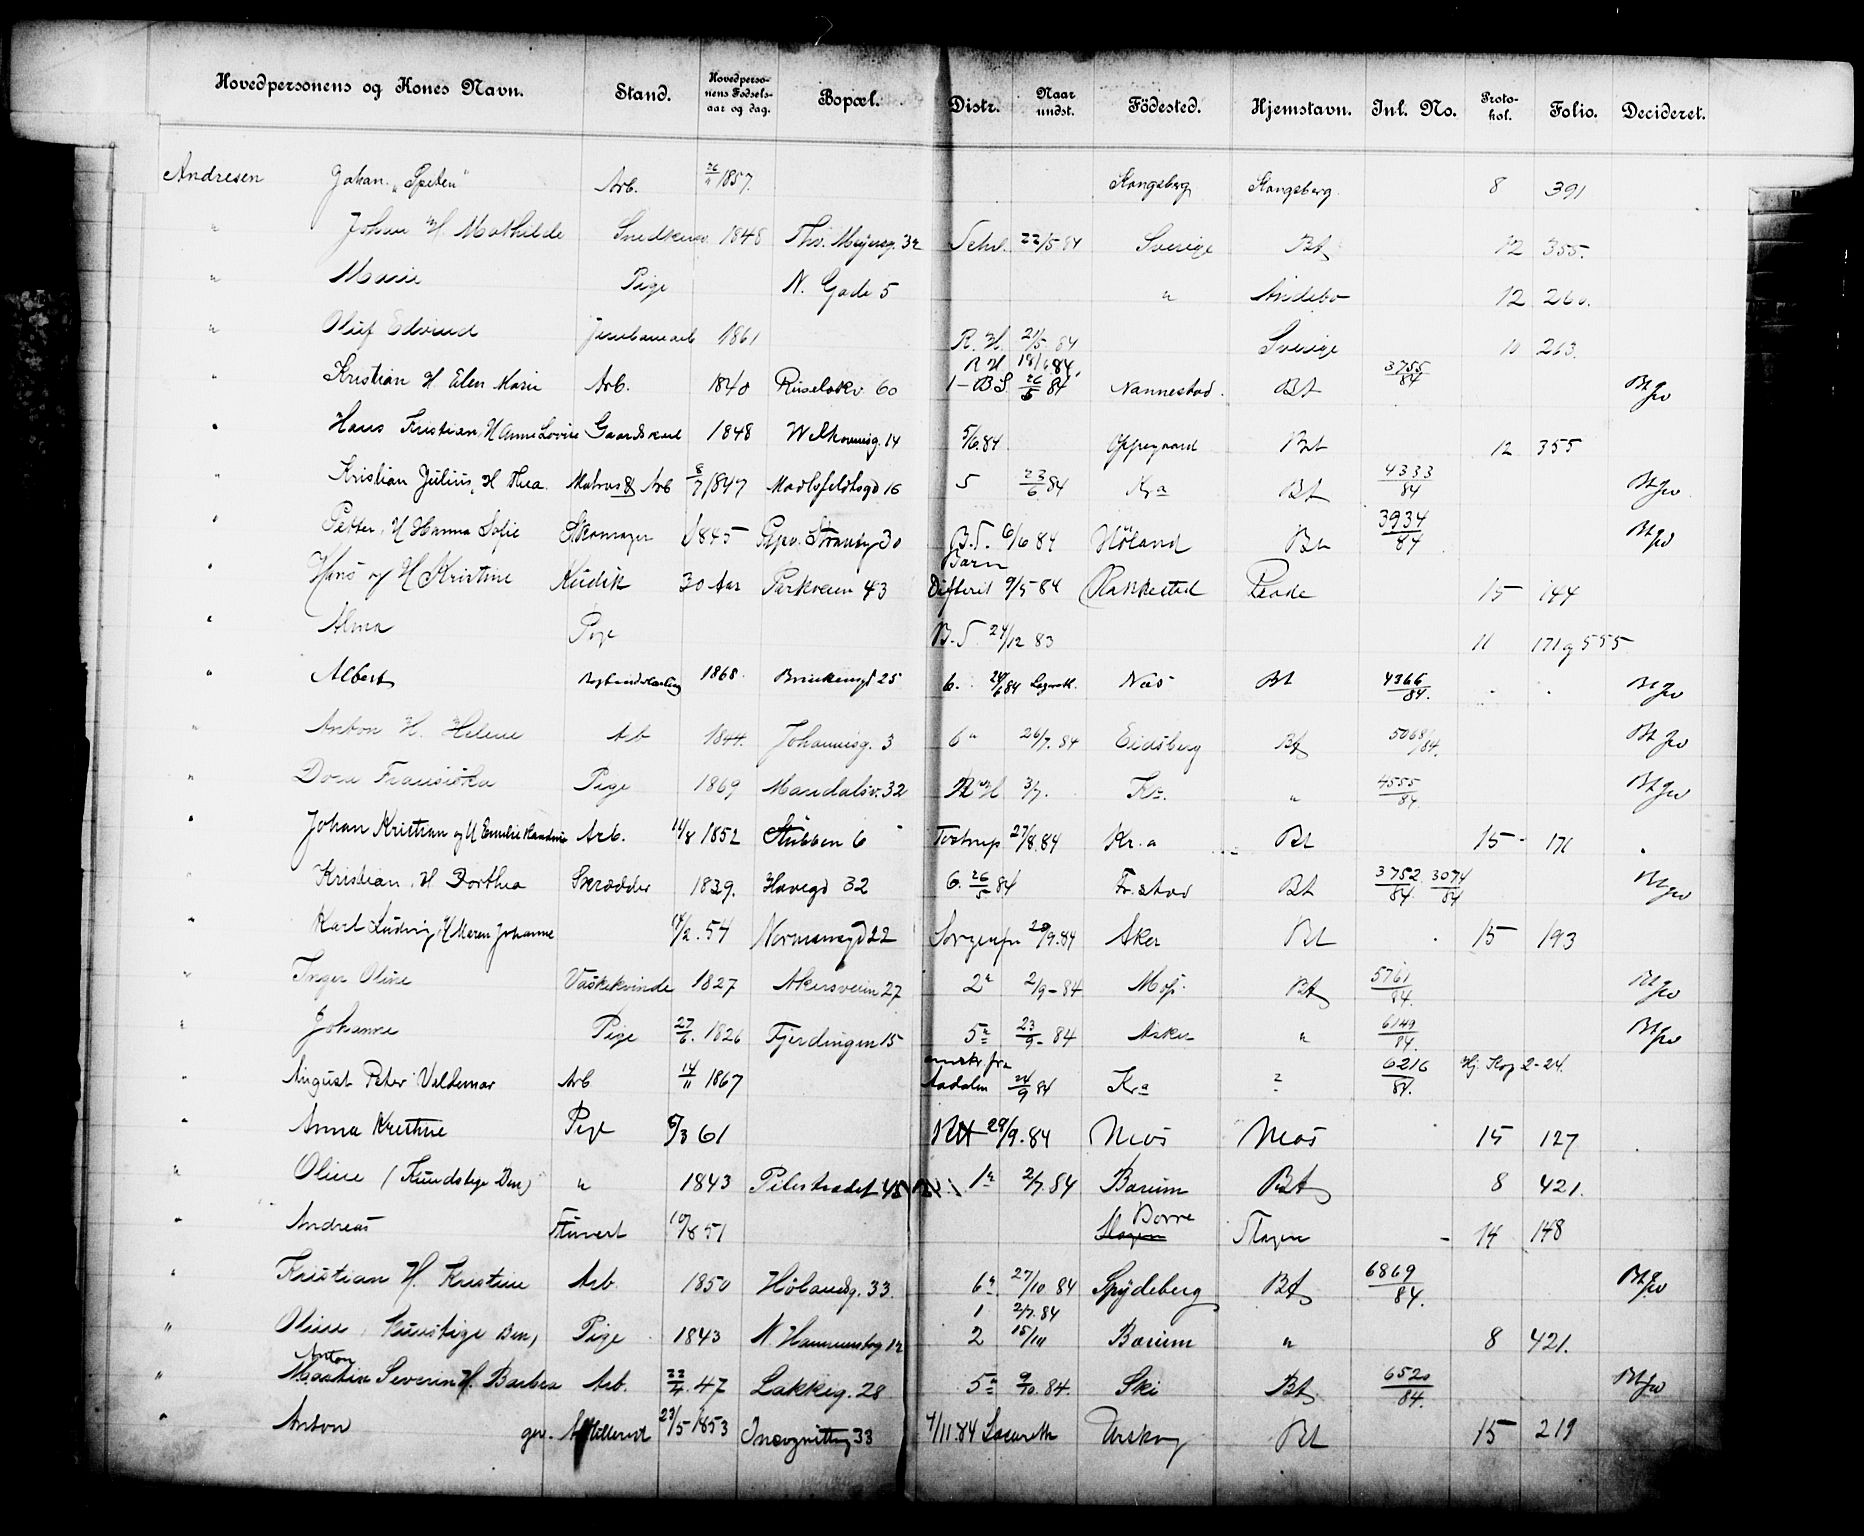 Hovedpersonens og Kones Navn. Stand. Hovedpersonens Fødselsaar og dag. Bopæl. Distr. Naar undst. Födested. Hjemstavn. Inl. No. Protokol. Folio. Decideret.
Andresen Johan "Speten" Arb. 26/11 1857. Kongsberg Kongsberg. 8 391
" Johan H. Mathilde Snedkersv. 1848 Thv. Meyersg. 32 22/5 84 Sverige Bt 12 355.
" Marie Pige N. Gade 5 " Andebo 12 260.
" Oluf Edvind Jernbanearb 1861 R. H. 21/5 84 Sverige 10 263.
" Kristian H Elen Marie Arb. 1840 Ruseløkv 60 R H 18/6 84. 1-BS 26/5 84 Nannestad. Bt 3755/84 Bt
" Hans Kristian, H Anne Lovise Gaardskarl 1848 Welhavensg. 14 5/6 84 Oppegaard Bt 12 355
" Kristian Julius, H Thea Matros & Arb 8/7 1847 16 5 23/6 84 Kra Bt 4333/84 Bt
" Petter, H Hanna Sofie Skomager 1845 30 B.S. 6/6 84 Höland Bt 3934/84 Bt
" Hans og H Kristine Kudsk 30 Aar Parkveien 43 Barn Difterit 9/5 84 Rakkestad Raade 15 144
" Alma Pige B.S. 24/12 83 11 171 og 555
" Albert 1868 25 6. 24/6 84 Næs Bt 4366/84. Bt
" Anton H. Helene Arb 1844. Johannesg. 3 6" 26/7. 84 Eidsberg Bt 5068/84. Bt
" Dora Fransiska Pige 1869 Maridalsv. 32 R H 3/7. Kra. " 4555/84 Bt
" Johan Kristian og H Emilie Arb. 14/8 1852 Stubben 6 Tostrup 27/8.84 Kr.a Bt 15 171
" Kristian, H Dorthea Skrædder 1839. Havegd 32 6. 26/5 84 Fr.stad Bt 3752/84 3074/84 Bt
" Karl Ludvig, H Maren Johanne 54 Normansgd 22 Sorgenfri 20/9.84 Aker Bt 15 193
" Inger Oline Vaskekvinde 1827 Akersveien 27 2" 2/9-84 Moss. Bt 5761/84. Bt
" Johanne Pige 27/6. 1826 Fjerdingen 15 5" 23/9-84 Asker " 6149/84. Bt
" August Peter Valdemar Arb 14/11 1867 ønsker fra Aadalen 24/9 84 Kra ? 6216/84. 2-24.
" Anna Kristine Pige 6/3 61 29/9.84 Moss Moss 15 127
" Oline (Kunstige Ben) " 1843 Pilestrædet 1" 2/7.84 Bærum Bt 8 421.
" Andreas Stuvert 10/8 51 Borre Slagen - 14 148
" Kristian H. Kristine Arb. 1850 Hölandsg. 33. 6" 27/10 84 Spydeberg Bt 6869/84. Bt
" Oline, Kunstige Ben) Pige 1843 1 2/7.84 2 15/10 Bærum " 8 421.
" Anton Martin Severin H. Barbra Arb. 22/4. 47 Lakkeg. 28 5" 9/10. 84. Ski Bt 6520/84. Bt
" Anton gev. Artillerist 23/5 1853 Incognitog 33 4/11.84 Lasareth Urskog Bt 15 219